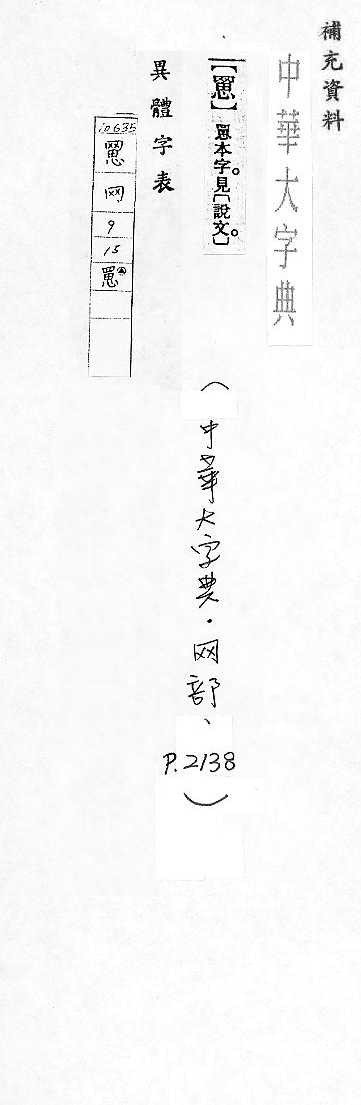 補充資料
中華大字典
【罳】罳本字。見[說文]。
異體字表
罳
网
9
15
罳
（中華大字典．网部、P.2138）